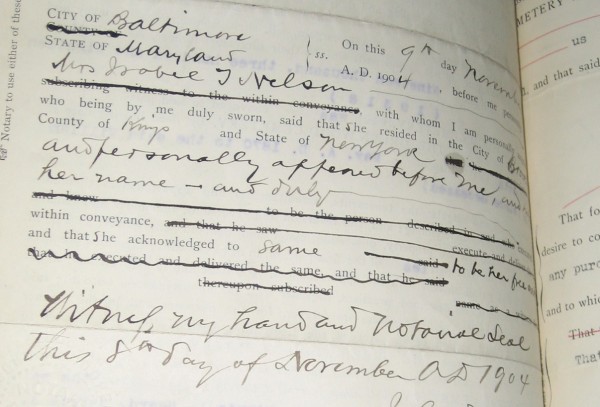 CITY OF Baltimore
COUNTY OF
STATE OF Maryland
ss.
On this 9th day Novem
A. D. 1904, before me person
Mrs Isobel T Nelson
subscribing witness to the within conveyance, with whom I am personally
who being by me duly sworn, said that she resided in the City of
County of Kings and State of New York
and personally appeared before me, and
her name – and duly
and know to be the person described in and
within conveyance, and that he saw execute and deliver
and that She acknowledged to same said to be her free
that he executed and delivered the same, and that he
thereupon subscribed name as a
Witness my hand and Notarial Seal
this 8th day of November A D 1904
Notary to use either of these
METERY
us
l, and that said
That fo
desire to co
any purc
and to which
That
That